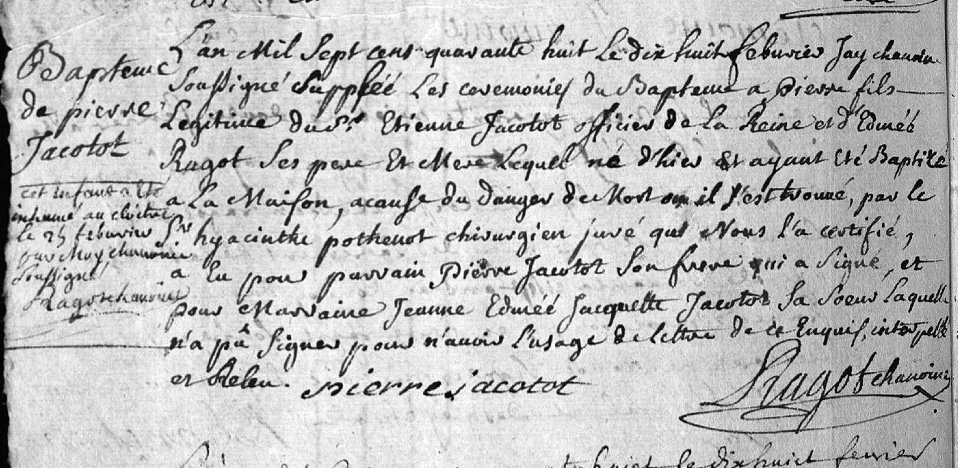 Bapteme
de pierre
Jacotot
cet enfant a été
inhumé au cloitre
le 25 febuvrier
par Moy chanoine
soussigné
Ragot chanoine
L'an Mil Sept cens quarante huit Le dix huit febuvrier Jay chanoin
Soussigné Suppléé Les ceremonies du Bapteme a Pierre fils
Legitime du Sr Etienne Jacotot officier de La Reine et d'Edmée
Ragot Ses pere Et Mere Lequel né d'hier Et ayant Eté Baptizé
a La Maison, acause du danger de Mort ou il s'est trouvé, par le
Sr hyacinthe pothenot chirurgien juré qui Nous l'a certifié,
a Eu pour parrain Pierre Jacotot Son frere qui a Signé, et
pour Marraine Jeanne Edmée Jacquette Jacotot Sa Soeur Laquelle
n'a pû Signer pour n'avoir L'usage de lettre de ce Enquis, interpellé
et Releu. pierre jacotot
Ragot chanoine
le dix huict fevrier